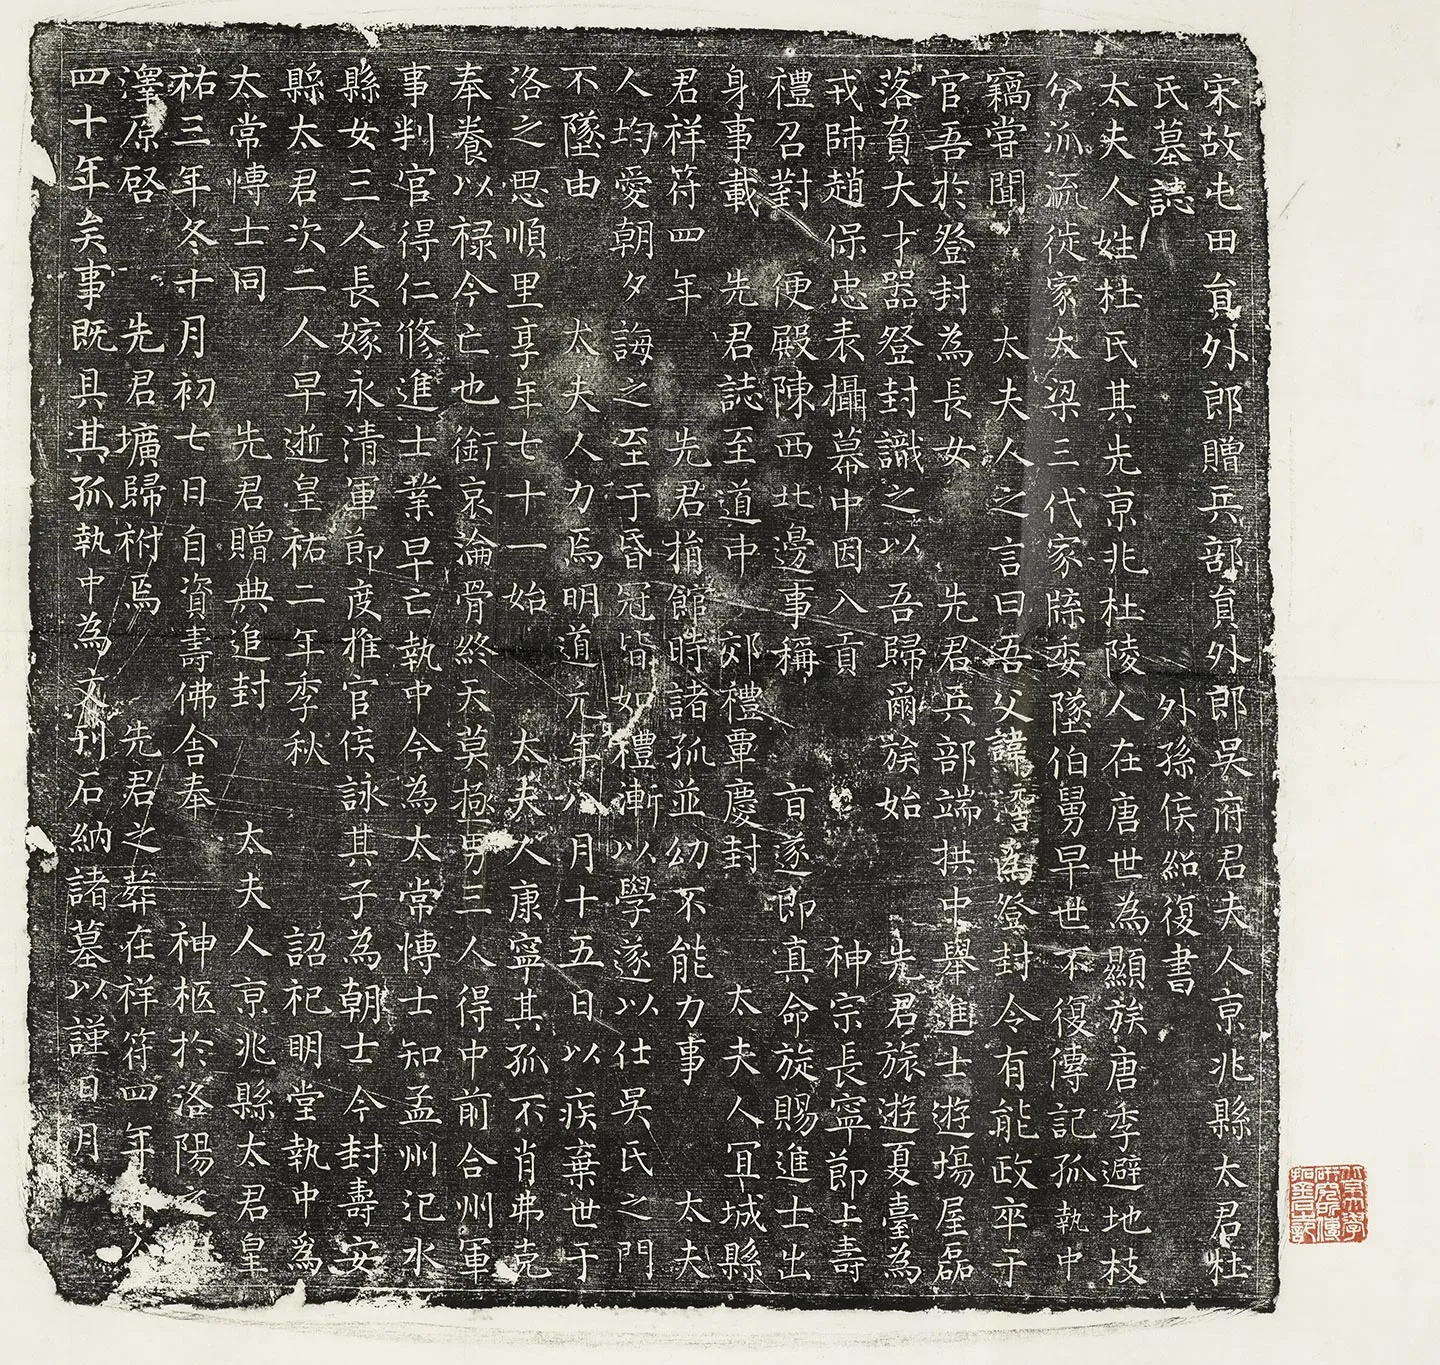 宋故屯田員外郎贈兵部員外郎吳府君夫人京兆縣太君杜
氏墓誌 外孫侯紹復書
太夫人姓杜氏其先京兆杜陵人在唐世為顯族唐季避地枝
分派流徙家大梁三代家牒委墜伯舅早世不復傳記孤執中
竊嘗聞 太夫人之言曰吾父諱 為登封令有能政卒于
官吾於登封為長女 先君兵部端拱中舉進士遊塲屋磊
落負大才器登封識之以 吾歸爾族始 先君旅遊夏臺為
戎帥趙保忠表攝幕中因入貢 神宗長寧節上壽
禮召對 便殿陳西北邊事稱 旨遂即真命旋賜進士出
身事載 先君誌至道中 郊禮覃慶封 太夫人冝城縣
君祥符四年 先君捐館時諸孤並幼不能力事 太夫
人均愛朝夕誨之至于昏冠皆如禮漸以學遂以仕吳氏之門
不墜由 太夫人力焉明道元年八月十五日以疾棄世于
洛之思順里享年七十一始 太夫人康寧其孤不肖弗克
奉養以祿今亡也銜哀淪骨終天莫極男三人得中前合州軍
事判官得仁修進士業早亡執中今為太常愽士知孟州汜水
縣女三人長嫁永清軍節度推官侯詠其子為朝士今封壽安
縣太君次二人早逝皇祐二年季秋 詔祀明堂執中為
太常愽士同 先君贈典追封 太夫人京兆縣太君皇
祐三年冬十月初七日自資壽佛舍奉 神柩於洛陽之
澤原啓 先君壙歸祔焉 先君之葬在祥符四年 八
四十年矣事既具其孤執中為文刊石納諸墓以謹日月